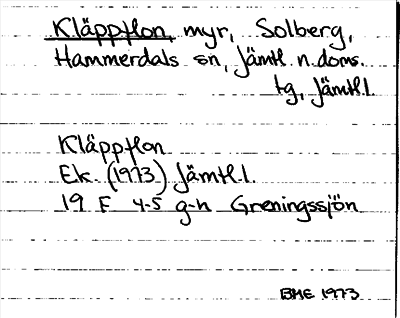 Kläppflon, myr, Solberg,
Hammerdals sn, Jämtl. n. doms.
tg, Jämtl. l.
Kläppflon
Ek. (1973) Jämtl. l.
19 F 4-5 g-h Greningssjön
BME 1973